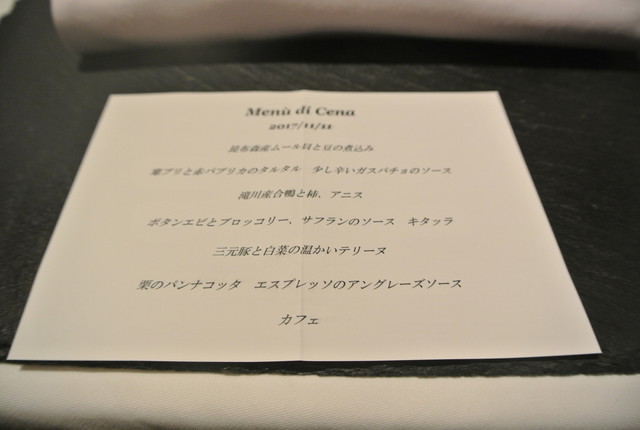 Menù di Cena
2017/11/11
昆布森産ムール貝と豆の煮込み
寒ブリと赤パプリカのタルタル　少し辛いガスパチョのソース
滝川産合鴨と柿、アニス
ボタンエビとブロッコリー、サフランのソース　キタッラ
三元豚と白菜の温かいテリーヌ
栗のパンナコッタ　エスプレッソのアングレーズソース
カフェ